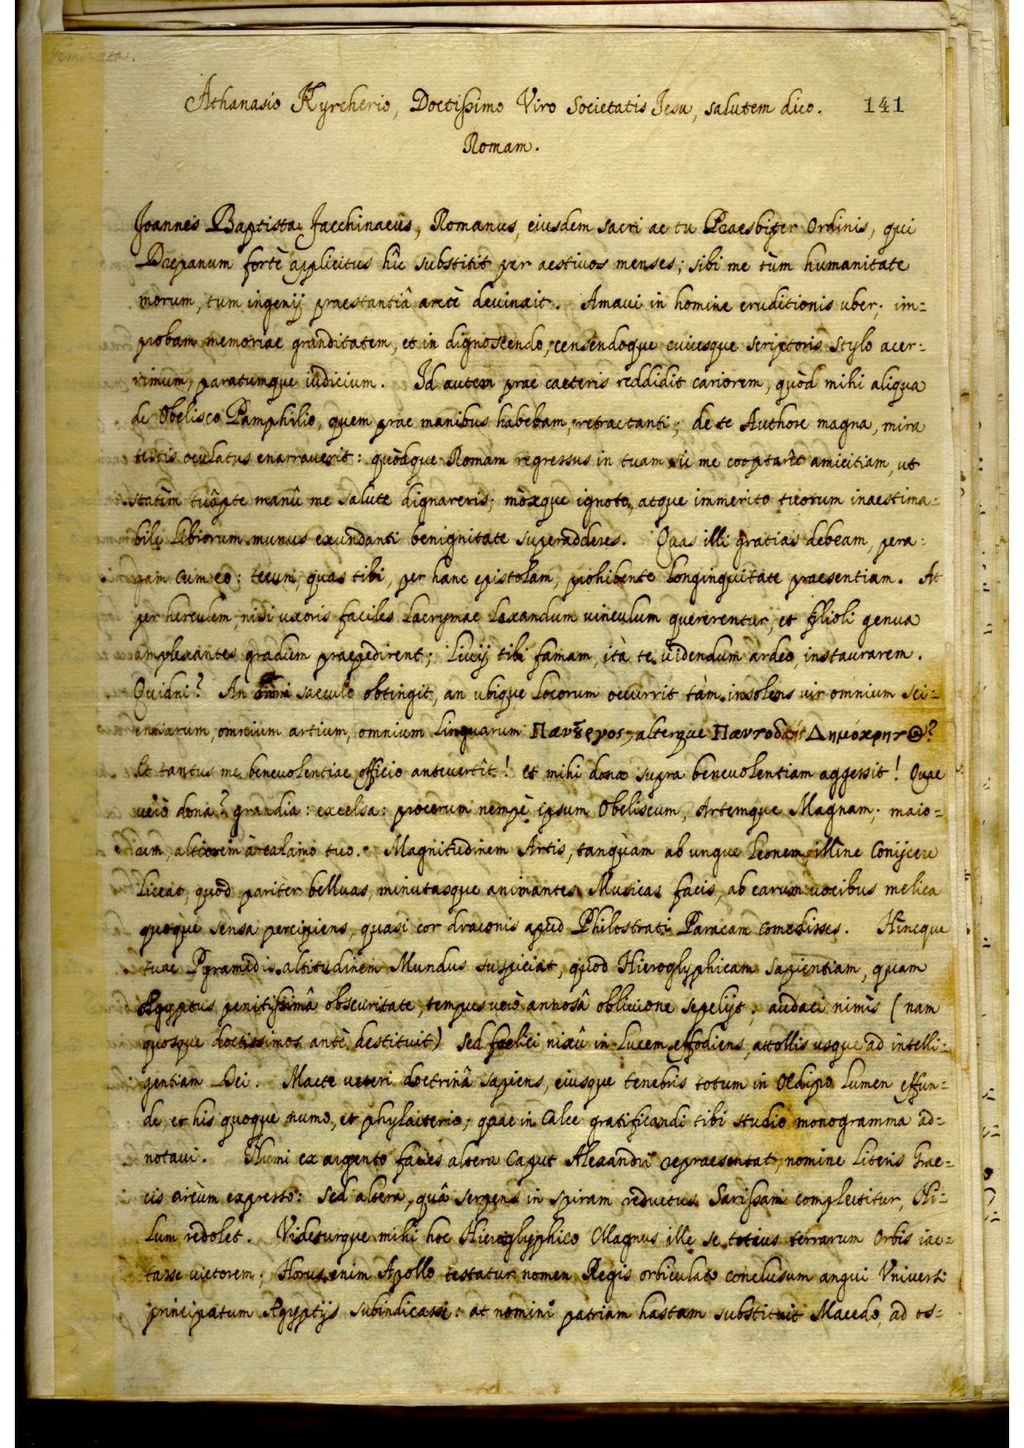 Athanasio Kyrcherio, Doctissimo Viro Societatis Jesu, salutem dico. 141
Romam.
Joannes Baptista Jacchinaeus, Romanus, eiusdem sacri ac tu Praesbiter Ordinis, qui
Drepanum fortè applicitus hîc substitit per aestivos menses; sibi me tùm humanitate
morum, tum ingenij praestantiâ arctè devinxit. Amavi in homine eruditionis uber; im-
probam memoriae granditatem, et in dignoscendo, censendoque cuiusque scriptoris stylo acer-
rimum, paratumque iudicium. Id autem prae caeteris reddidit cariorem, quòd mihi aliqua
de Obelisco Pamphilio, quem prae manibus habebam, retractanti; de te Authore magna, mira
testis oculatus enarraverit: quòdque Romam regressus in tuam me cooptarit amicitiam, ut
statim tuâpte manû me salute dignareris; mòxque ignoto, atque immerito tuorum inaestima-
bile librorum munus exundanti benignitate superadderes. Quas illi gratias debeam, pera-
gam cum eo: tecum, quas tibi, per hanc epistolam, prohibente longinquitate praesentiam. At
per herculem, nisi uxoris faciles lacrymae laxandum vinculum quererentur, et filioli genua
amplexantes gradum praepedirent; Livij tibi famam, ità te videndum ardeo, instaurarem.
Quidni? An omni saeculo obtingit, an ubique locorum occurrit tàm insolens vir omnium sci-
entiarum, omnium artium, omnium linguarum Πανȣργος, alterque Δημόκριτος?
Et tantus me benevolentiae officio antevertit! et mihi dona supra benevolentiam aggessit! Quae
verò dona? grandia: excelsa: procerum nempè ipsum Obeliscum, Artemque Magnam; maio-
rem, altiorem à calamo tuo. Magnitudinem Artis, tanquàm ab ungue leonem, illinc conijcere
liceat, quòd pariter belluas, minutasque animantes Musicas facis, ab earum vocibus melica
quoque sensa percipiens, quasi cor draconis apud Philostrati Paracam comedisses. Hincque
tuae Pyramidis altitudinem Mundus suspiciat, quòd Hieroglyphicam sapientiam, quam
Aegyptus penitissimâ obscuritate, tempus verò annosâ oblivione sepelijt; audaci nimis (nam
quosque doctissimos antè destituit) sed faelici nixû in lucem effodiens, attollis usque ad intelli-
gentiam Dei. Macte veteri doctrinâ sapiens, eiusque tenebris totum in Oedipo lumen effun-
de, et his quoque numo, et phylacterio; quae in calce gratificandi tibi studio monogramma ad-
notavi. Numi ex argento facies altera caput Alexandri repraesentat, nomine literis Grae-
cis circum expresso: sed altera, quâ serpens in spiram reductus Sarissam complectitur, Ni-
lum redolet. Videturque mihi hoc Hieroglyphico Magnus ille se totius terrarum Orbis iac-
tasse victorem; Horus enim Apollo testatur nomen Regis orbiculato conclusum angui Universi
principatum Aegyptijs subindicasse: at nomini patriam hastam substituit Macedo, ad os-